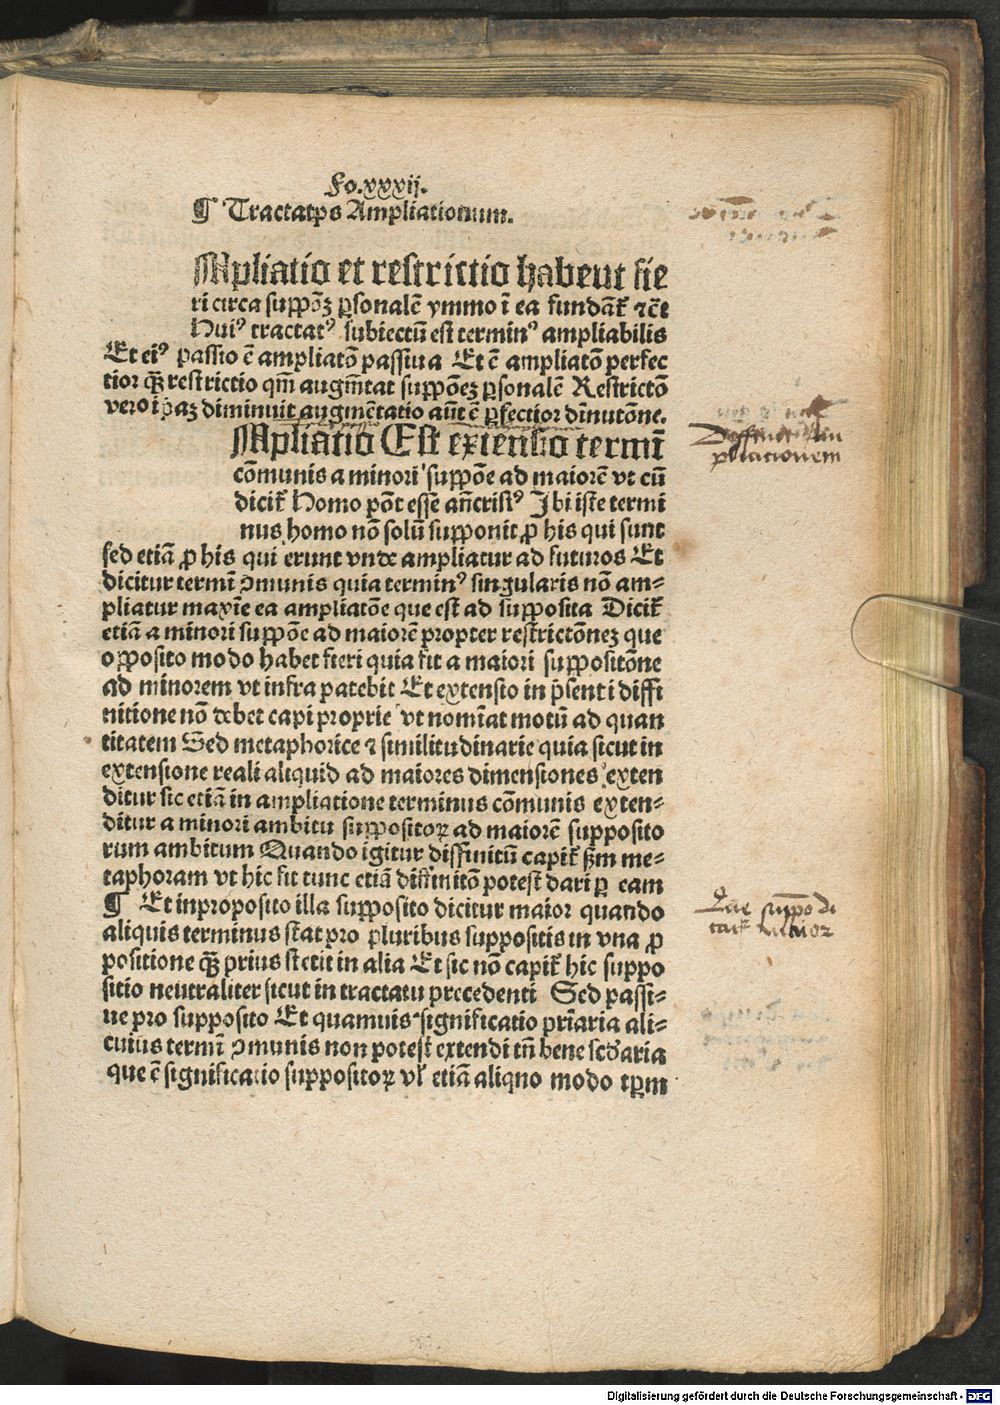 Fo.xxxij.
¶ Tractatps Ampliationum.
Mpliatio et restrictio habeut fie
ri circa suppōꝫ ꝑsonalē ymmo ī ea fundāt̄ ⁊cē
Huiꝰ tractatꝰ subiectū est terminꝰ ampliabilis
Et eiꝰ passio ē ampliatō passiua Et ē ampliatō perfec
tior qꝫ̄ restrictio qm̄ augm̄tat suppōeꝫ ꝑsonalē Restrictō
vero ipaꝫ diminuit augmētatio aūt ē ꝑfectior dīnutōne.
Mpliatio Est extensio termī
cōmunis a minori suppōe ad maiorē vt cū
dicit̄ Homo pōt esse añcristꝰ Ibi iste termi
nus homo nō solū supponit ꝓ his qui sunt
sed etiā ꝓ his qui erunt vnde ampliatur ad futuros Et
dicitur termī ꝯmunis quia terminꝰ singularis nō am⸗
pliatur maxīe ea ampliatōe que est ad supposita Dicit̄
etiā a minori suppōe ad maiorē propter restrictōneꝫ que
opposito modo habet fieri quia fit a maiori suppositōne
ad minorem vt infra patebit Et extensio in p̄senti diffi
nitione nō debet capi proprie vt nomīat motū ad quan
titatem Sed metaphorice ⁊ similitudinarie quia sicut in
extensione reali aliquid ad maiores dimensiones exten
ditur sic etiā in ampliatione terminus cōmunis exten⸗
ditur a minori ambitu suppositoꝝ ad maiorē supposito
rum ambitum Quando igitur diffinitū capit̄ ẜm me⸗
taphoram vt hic fit tunc etiā diffinitō potest dari ꝑ eam
¶ Et inproposito illa supposito dicitur maior quando
aliquis terminus stat pro pluribus suppositis in vna ꝓ
positione qꝫ̄ prius stetit in alia Et sic nō capit̄ hic suppo
sitio neutraliter sicut in tractatu precedenti Sed passi⸗
ue pro supposito Et quamuis significatio prīaria ali⸗
cuius termī ꝯmunis non potest extendi tñ bene scd̄aria
que ē significatio suppositoꝝ vl̄ etiā aliqno modo tꝑm
Diffinit Am
pliacionem
Que suppō di
cat̄ maior
Digitalisierung gefördert durch die Deutsche Forschungsgemeinschaft - DFG